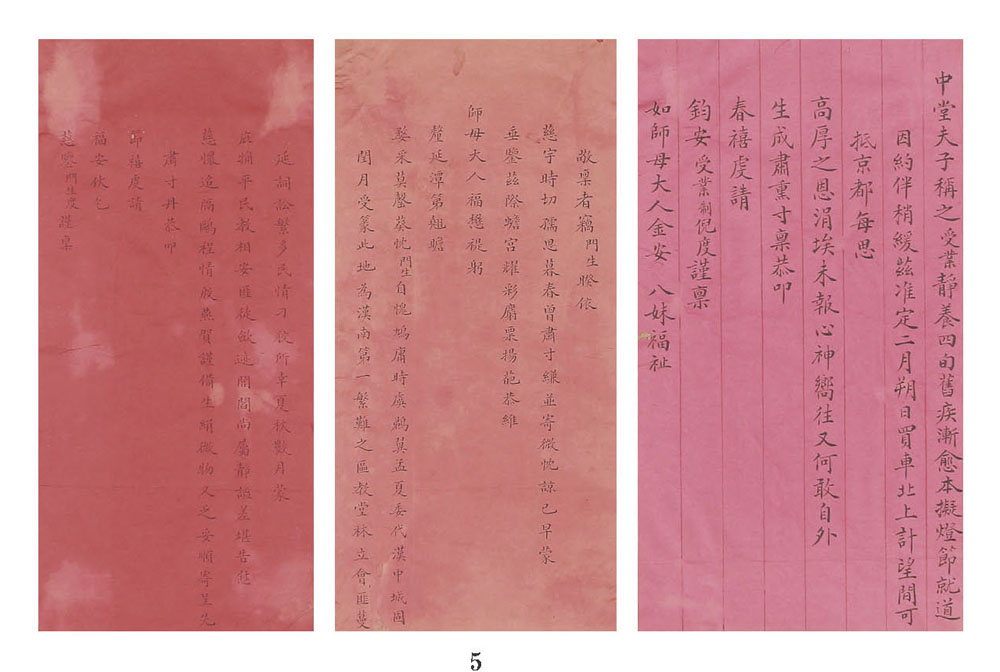 中堂夫子稱之受業靜養四旬舊疾漸愈本擬燈節就道
因約伴稍緩茲准定二月朔日買車北上計望間可
抵京都每思
高厚之恩涓埃未報心神嚮往又何敢自外
生成肅熏寸稟恭叩
春禧虔請
鈞安受業制倪度謹稟
如師母大人金安 八妹福祉
敬稟者竊門生睽依
慈宇時切孺思暮春曾肅寸緘並寄微忱諒已早蒙
垂鑒茲際蟾宮耀彩廓粟揚葩恭維
師母大人福懋禔躬
釐延潭第翹瞻
婺采莫罄葵忱門生自愧鳩庸時虞鵜翼孟夏委代漢中城固
閏月受篆此地為漢南第一繁難之區教堂林立會匪蔓
延詞訟繁多民情刁狡所幸夏秋數月蒙
庇輔平民教相安匪徒斂迹閭閻尚屬靜謐差堪告慰
慈懷造隔程情殷燕賀謹備生絹微物又乏妥順寄呈先
肅寸丹恭叩
節禧虔請
福安伏乞
慈鑒門生度謹稟
5